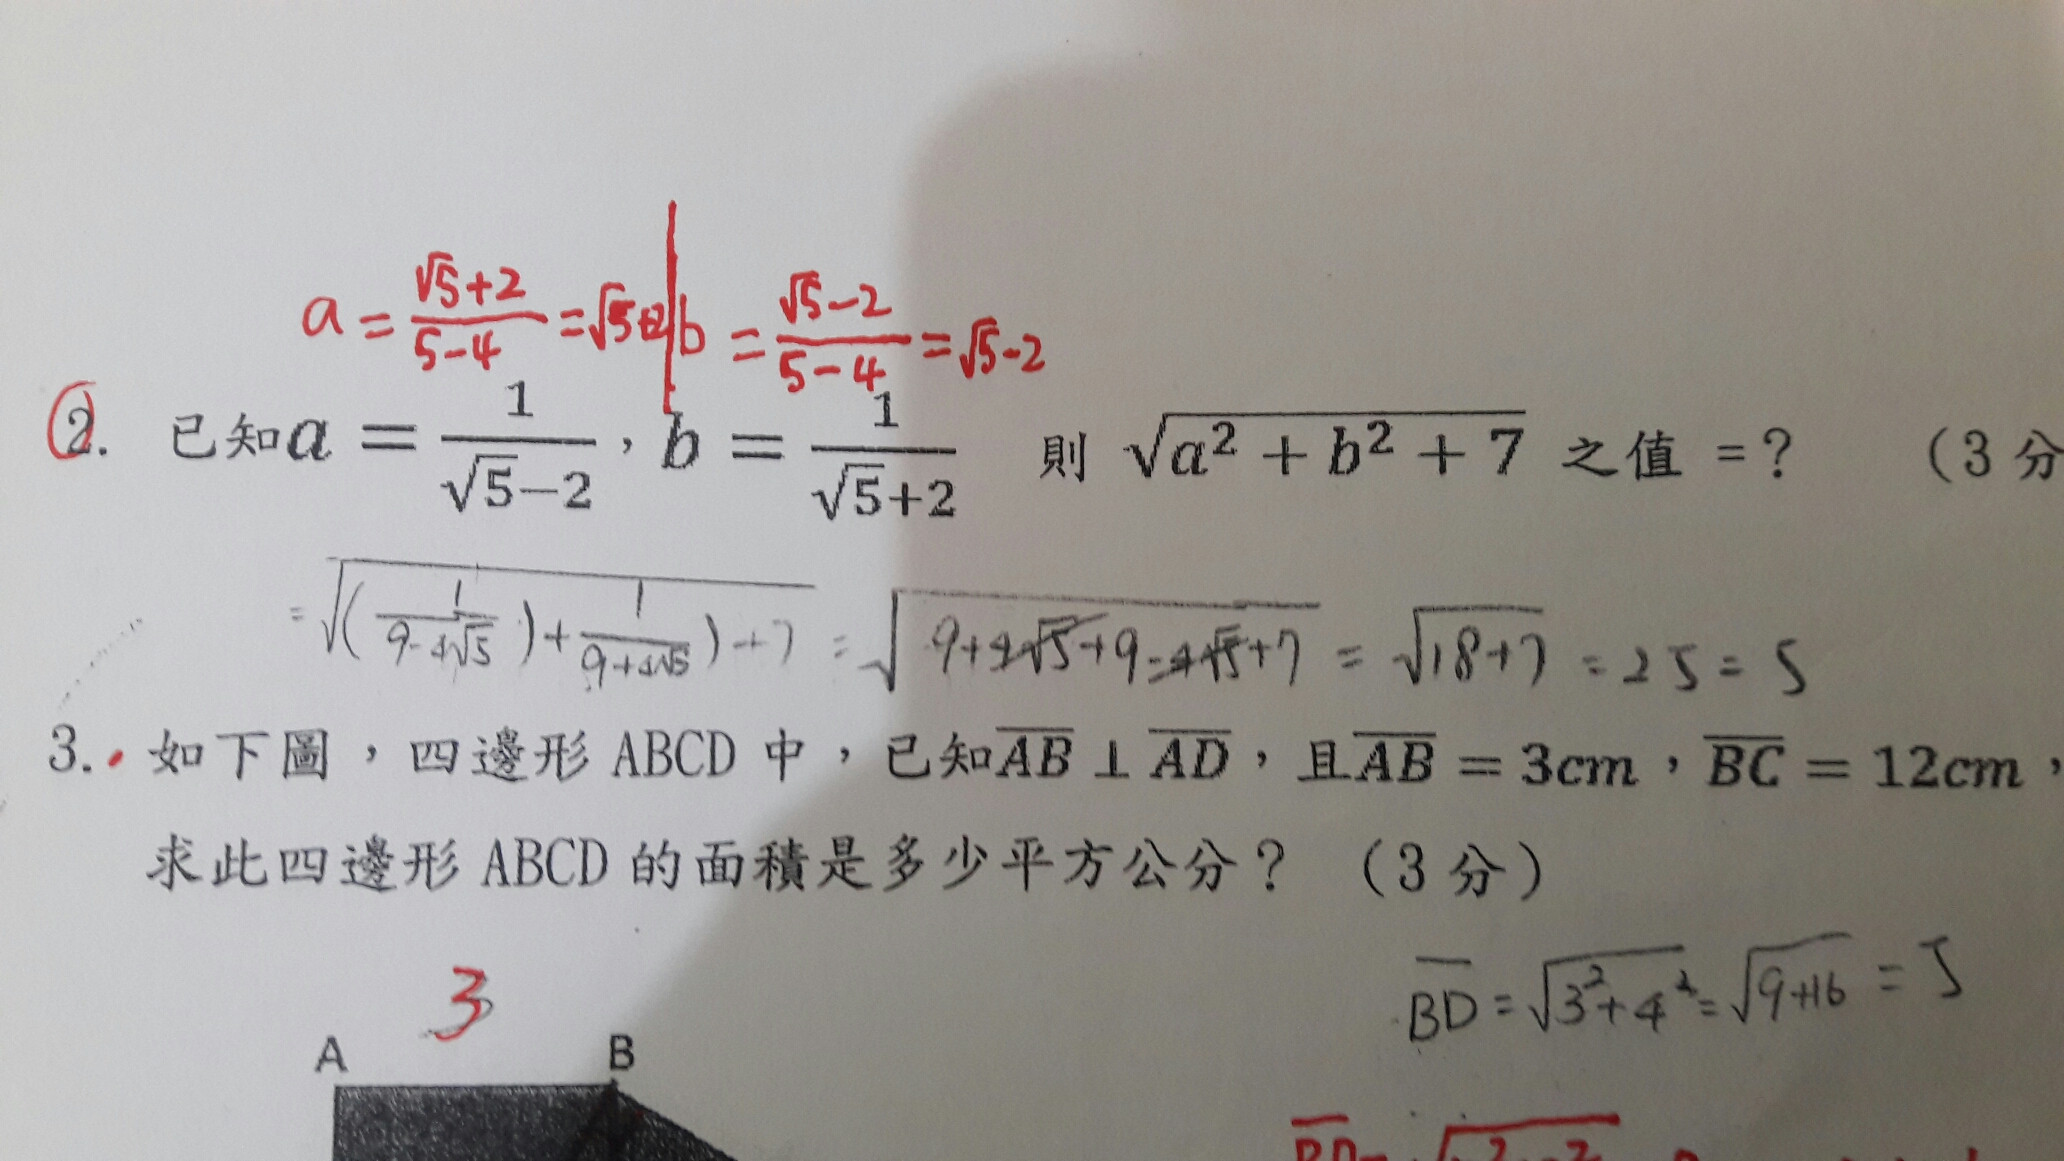 a = (√5+2)/(5-4) = √5+2 | b = (√5-2)/(5-4) = √5-2
2. 已知a = 1/(√5-2)，b = 1/(√5+2) 則 √(a² + b² + 7) 之值 =? （3 分
= √((1/(9-4√5))+1/(9+4√5))+7 = √(9+4√5+9-4√5+7) = √(18+7) = 25 = 5
3. 如下圖，四邊形 ABCD 中，已知AB⊥AD，且AB = 3cm，BC = 12cm，
求此四邊形 ABCD 的面積是多少平方公分？（3 分）
BD = √(3²+4²) = √(9+16) = 5
3
A B